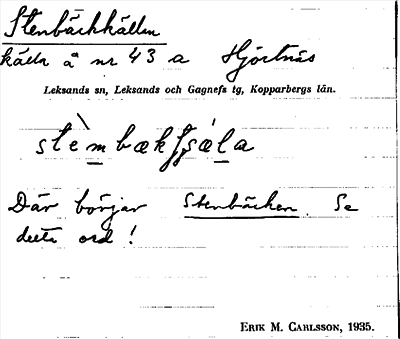 Stenbäckkällan
källa å nr 43 a Hjortnäs
Leksands sn, Leksands och Gagnefs tg, Kopparbergs län.
Där börjar Stenbäcken. Se
detta ord!
ERIK M. CARLSSON, 1935.